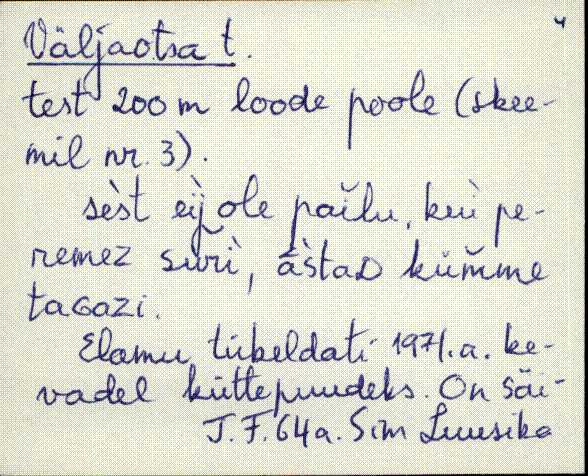 4
Väljaotsa t.
test 200 m loode poole (skee-
mil nr. 3).
sèst èi̬j ole pai̬lu, kuì pe-
remez surì, ästaᴅ kümme
taɢazi.
Elamu tükeldati 1971. a. ke-
vadel küttepuudeks. On säi-
J. F. 64 a. Sim Luusika